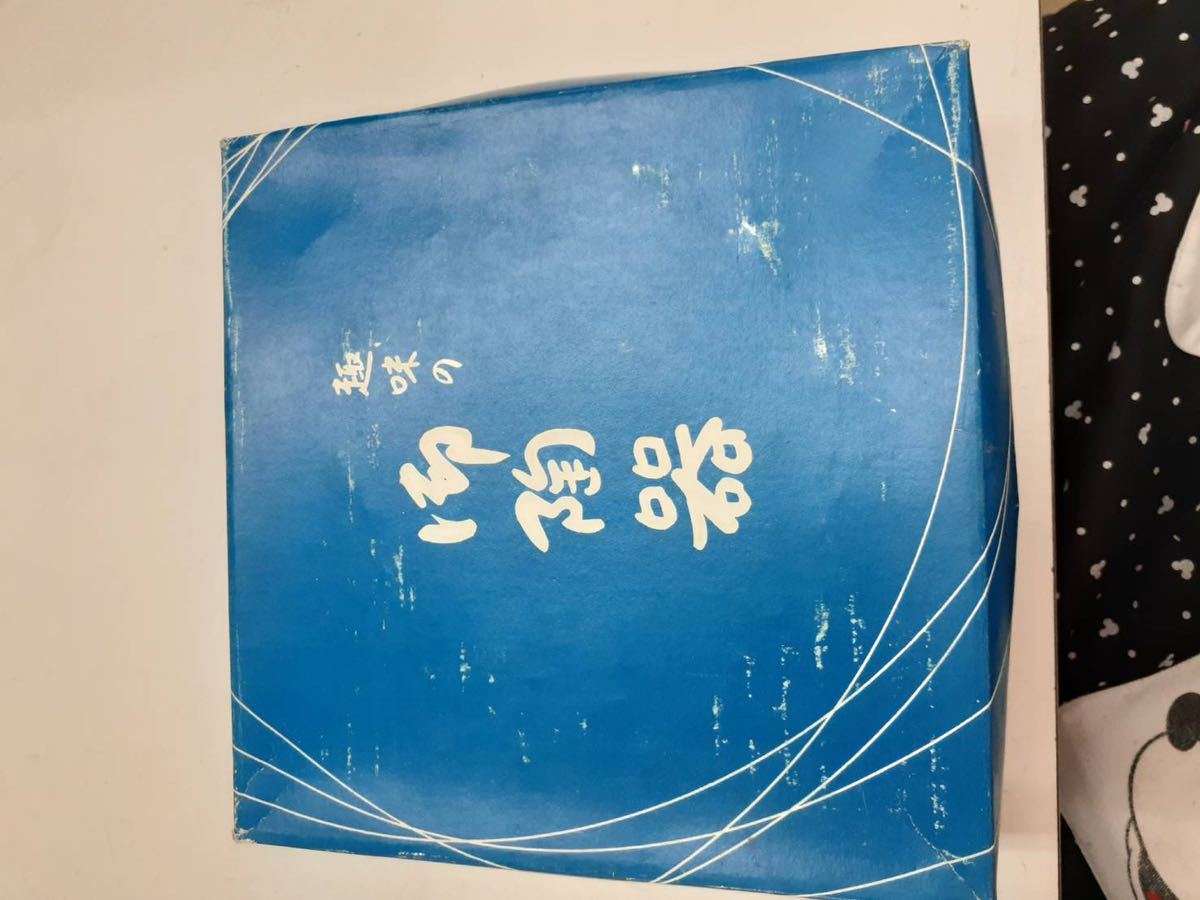 趣味の
御陶器